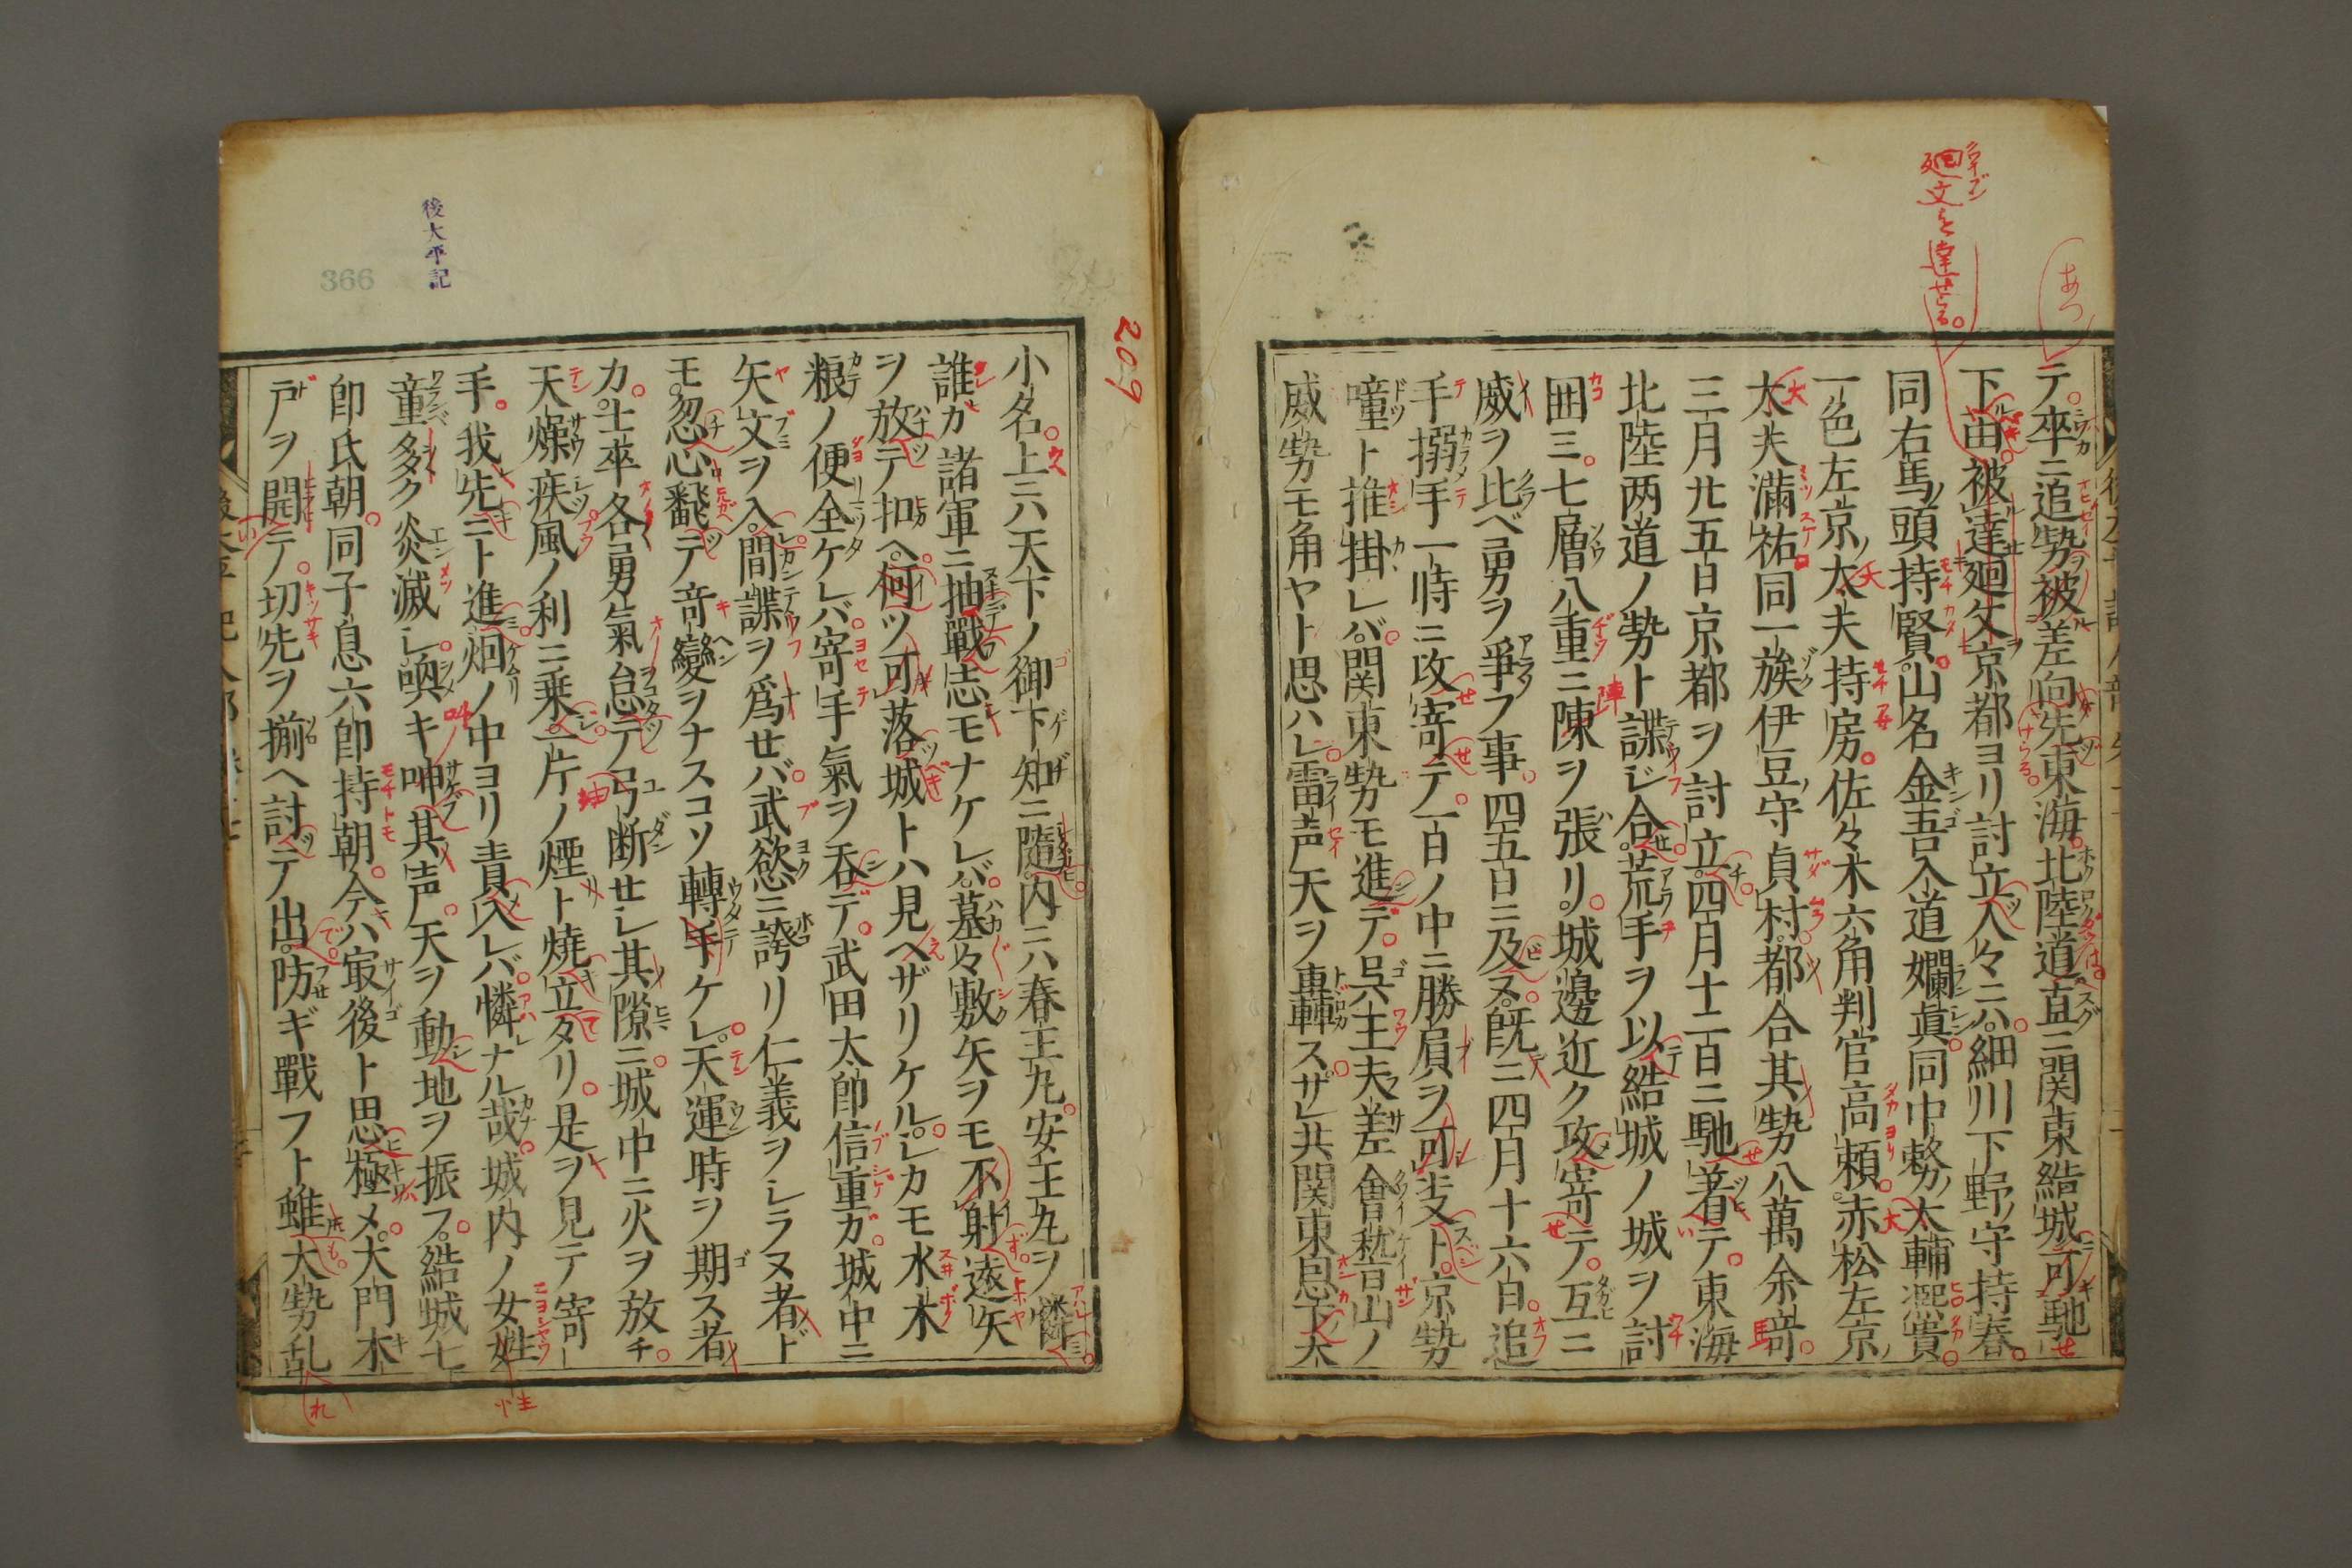 テ卒ニ追勢被差向先東海北陸道直ニ関東結城可馳
下由被達廻文京都ヨリ討立人々ニハ細川下野守持春
同右馬頭持賢山名金吾入道同中務大輔凞貴
一色左京大夫持房佐々木六角判官高頼赤松左京
大夫満祐同一族伊豆守貞村都合其勢八萬余
三月廿五日京都ヲ討立四月十二日ニ馳着テ東海
北陸两道ノ勢ト諜シ合荒手ヲ以結城ノ城ヲ討
囲三七層八重ニ陳ヲ張リ城邊近ク攻寄テ互ニ
威ヲ比べ勇ヲ爭フ事四五日ニ及又既ニ四月十六日追
手搦手一時ニ攻寄テ一百ノ中ニ勝負ヲ可支ト京勢
噇ト推掛レバ関東勢モ進デ呉王夫差會稽山ノ
威勢モ角ヤト思ハレ雷声天ヲ轟スザレ共関東息下大
小名上ニハ天下ノ御下知ニ隨内ニハ春王丸安王丸ヲ憐
誰カ諸軍ニ抽戰志モナケレバ墓々敷矢ヲモ不射遠矢
ヲ放テ扣ヘ何ツ可落城トハ見ヘザリケルシカモ水木
粮ノ便全ケレバ寄手氣ヲ呑デ武田太郎信重ガ城中ニ
矢文ヲ入間諜ヲ爲セバ武慾ニ誇リ仁義ヲシラヌ者ド
モ忽心飜テ竒變ヲナスコソ轉ケレ天運時ヲ期ス者
カ士卒各勇氣怠テ弓断セシ其隙ニ城中ニ火ヲ放チ
天燥疾風ノ利ニ乗一片ノ煙ト焼立タリ是ヲ見テ寄
手我先ニト進烟ノ中ヨリ責入レバ憐ナル哉城内ノ女姓
童多ク炎滅シ喚キ呻其声天ヲ動シ地ヲ振フ結城七
郎氏朝同子息六郎持朝今ハ㝡後ト思極メ大門木
戸ヲ開テ切先ヲ揃ヘ討テ出防ギ戰フト雖大勢乱
廻文を達せらる。
あつ
209
後太平記
366